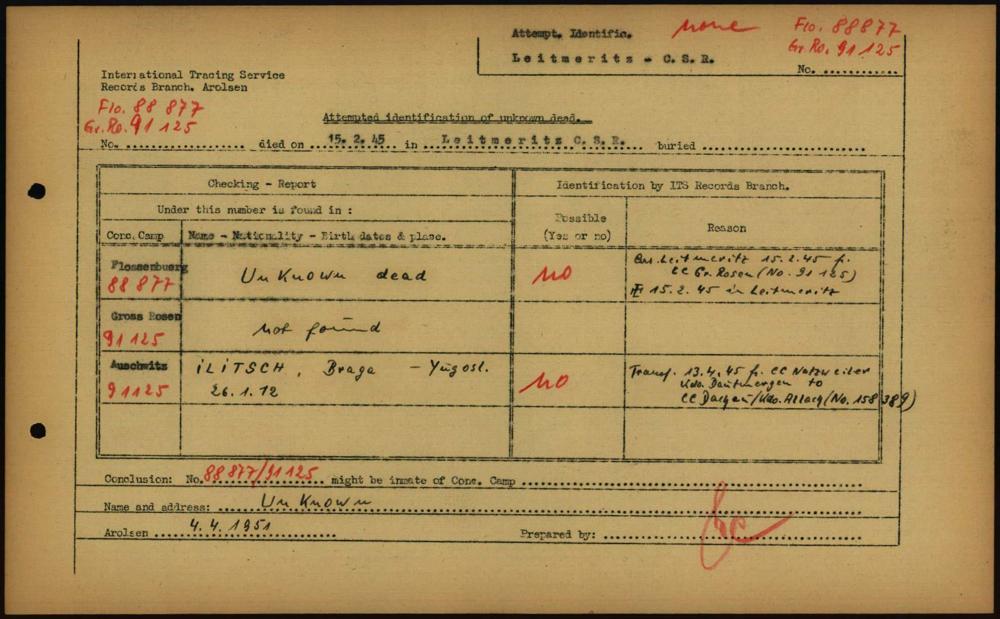 Attempt. Identific. none Flo. 88877
Gr. Ro. 91125
Leitmeritz - C.S.R.
No. ............
International Tracing Service
Records Branch. Arolsen
Flo. 88 877
Gr. Ro. 91 125
Attempted identification of unknown dead.
No. ............ died on 15. 2. 45 in Leitmeritz C.S.R. buried ............
Checking - Report Identification by ITS Records Branch.
Under this number is found in :
Possible
(Yes or no) Reason
Conc. Camp Name - Nationality - Birth dates & place.
Flossenbuerg
88 877 Unknown dead no Arr. Leitmeritz 15.2.45 f.
CC Gr. Rosen (No. 91 125)
15.2.45 in Leitmeritz
Gross Rosen
91125 not found
Auschwitz
91125 ILITSCH, Braga - Yugosl.
26.1.12 no Transf. 13.4.45 f. CC Natzweiler
Kdo. Dautmergen to
CC Dachau/Kdo. Allach (No. 158 389)
Conclusion: No. 88877/91125 might be inmate of Conc. Camp ............
Name and address: Unknown
Arolsen 4.4.1951 Prepared by: ............